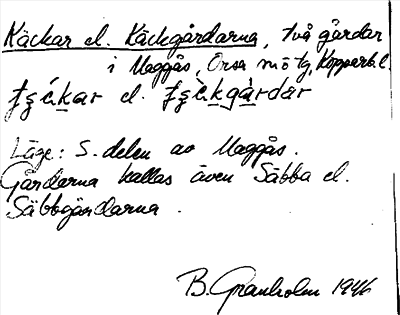 Käckar el. Käckgårdarna, två gårdar
i Maggås, Orsa sn o tg, Kopparb. l.
ʈʂɛ́kar el. ʈʂɛ̀kgàrdar
Läge: S. delen av Maggås.
Gårdarna kallas även Säbba el.
Säbbgårdarna.
B. Granholm 1946